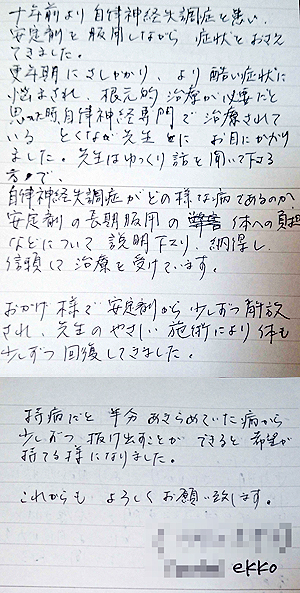 十年前より自律神経失調症を患い、
安定剤を服用しながら 症状をおさえ
てきました。
更年期にさしかかり、より酷い症状に
悩まされ、根元的治療が必要だと
思った時、自律神経専門で治療されて
いる とくなが先生 に お目にかかり
ました。先生はゆっくり話を聞いて下さる
方で、
自律神経失調症がどの様な病であるのか、
安定剤の長期服用の 障害 体への負担
などについて 説明下さり、納得し、
信頼して治療を受けています。
おかげ様で安定剤から少しずつ解放
され、先生のやさしい施術により体も
少しずつ回復してきました。
持病だと半分あきらめていた病から
少しずつ抜け出すことができると希望が
持てる様になりました。
これからも よろしくお願い致します。
ekko